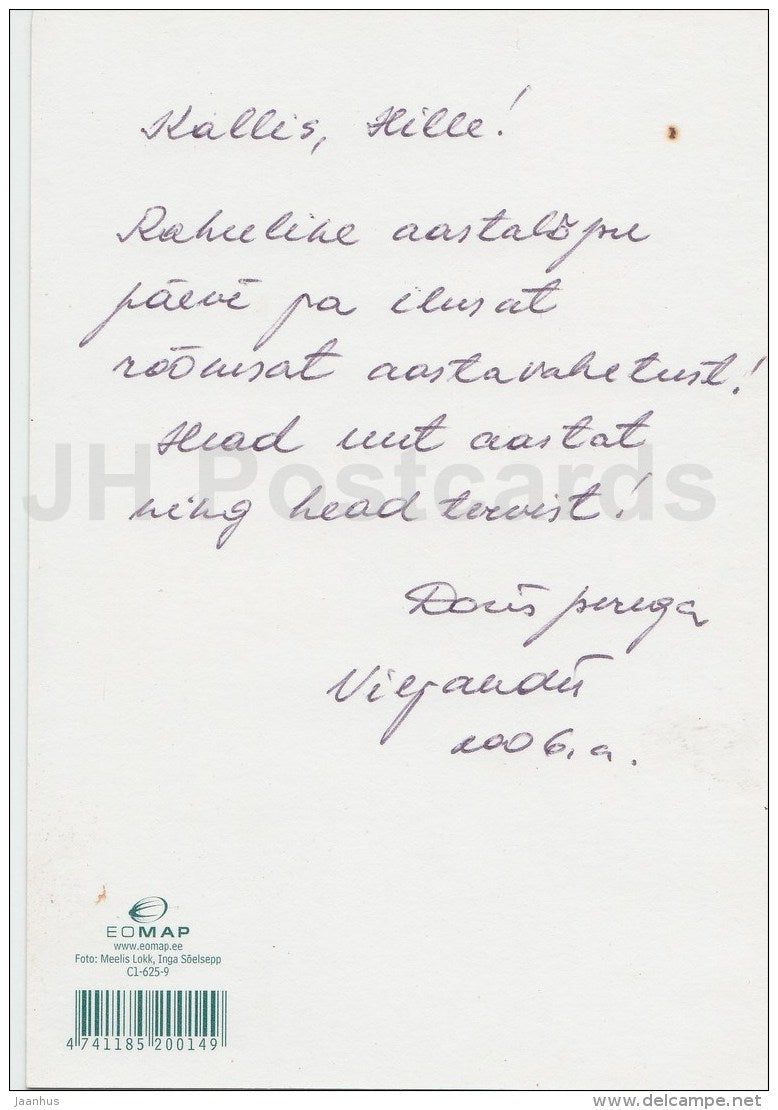 Kallis, Hille!
Rahulike aastalõpu
päevi ja ilusat
rõõmsat aastavahetust!
Head uut aastat
ning head tervist!
Doris perega
Viljandis
2006.a.
JH Postcards
EOMAP
www.eomap.ee
Foto: Meelis Lokk, Inga Sõelsepp
C1-625-9
4 741185 200149
Jaanhus
www.delcampe.net